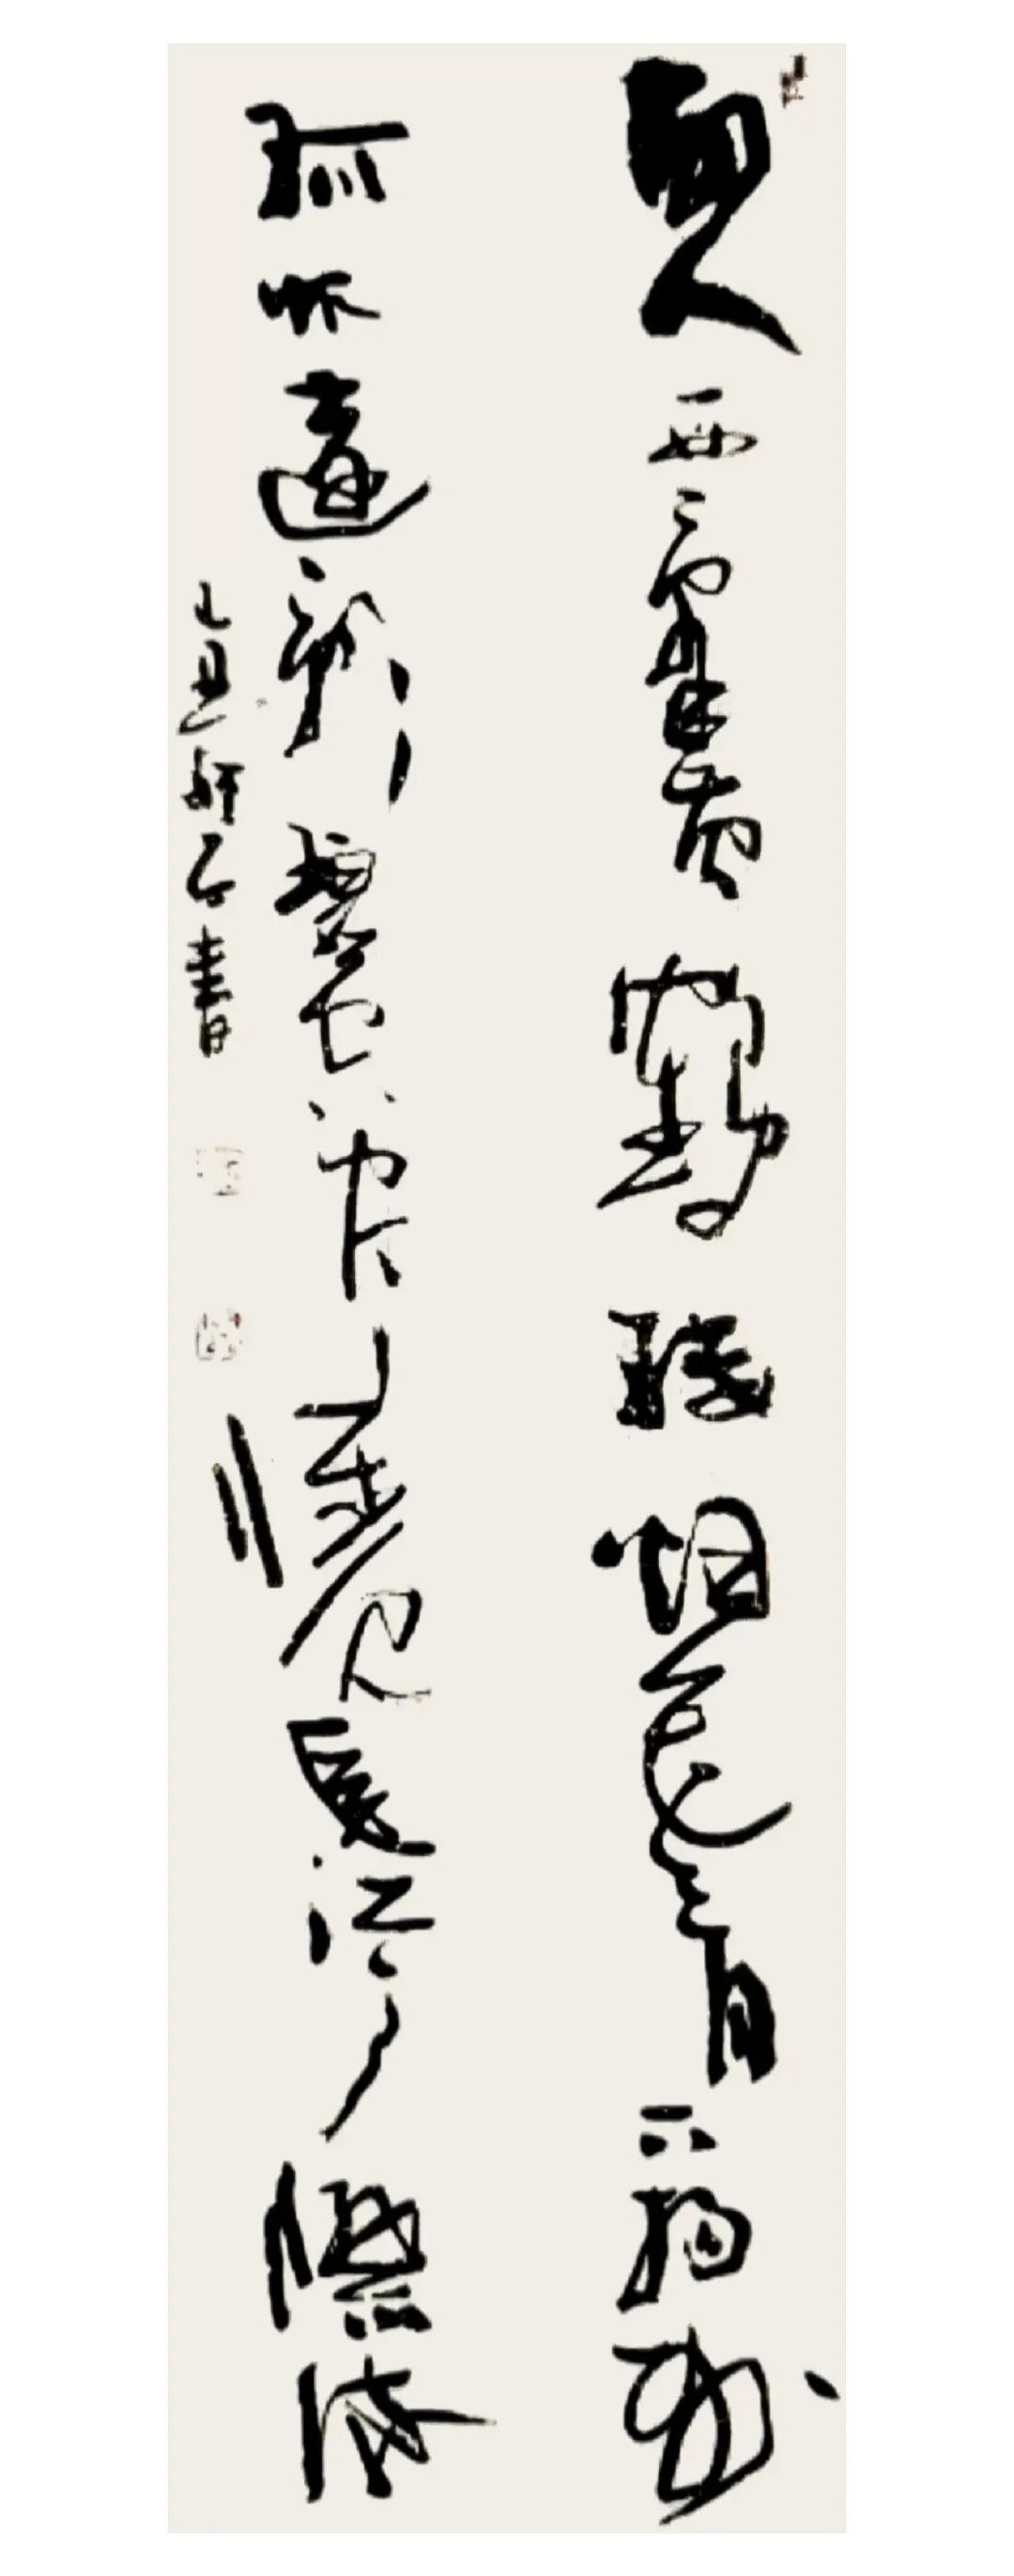 故人西辞黄鹤楼烟花三月下扬州
孤帆远影碧空尽惟见长江天际流
乙丑 书